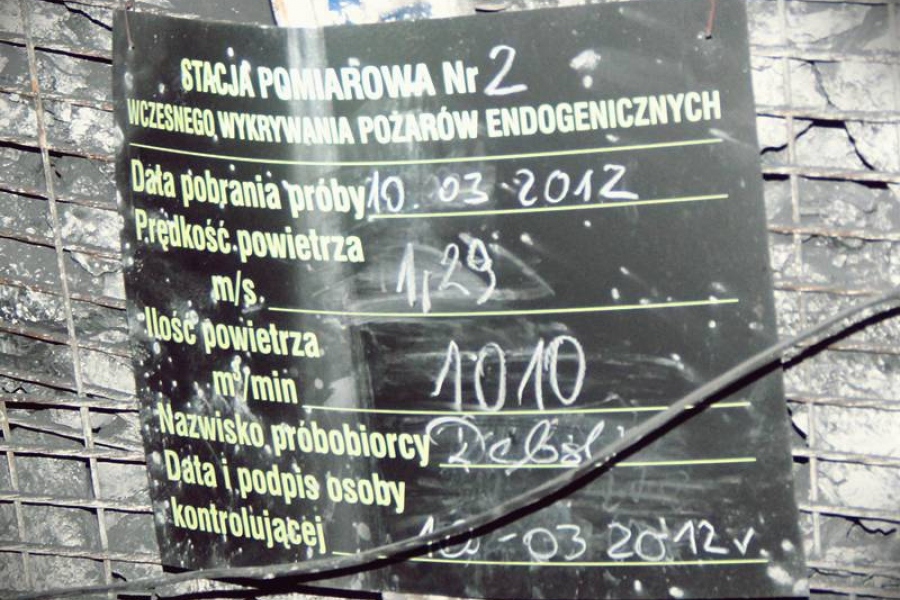 STACJA POMIAROWA Nr 2
WCZESNEGO WYKRYWANIA POŻARÓW ENDOGENICZNYCH
Data pobrania próby 10.03.2012
Prędkość powietrza
m/s. 1,29
Ilość powietrza
m³/min 1010
Nazwisko próbobiorcy
Data i podpis osoby
kontrolującej 10-03 2012 r